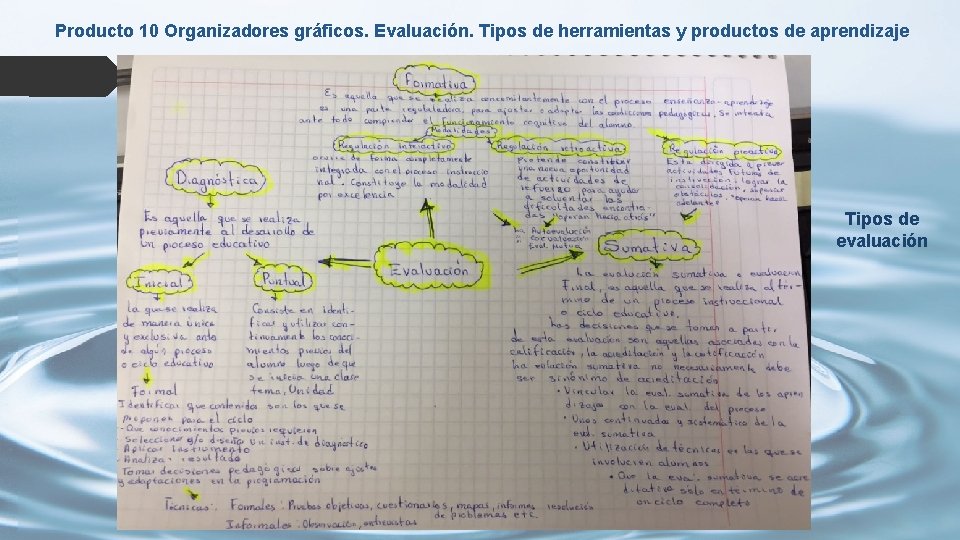 Producto 10 Organizadores gráficos. Evaluación. Tipos de herramientas y productos de aprendizaje
Formativa
Es aquella que se realiza concomitantemente con el proceso enseñanza-aprendizaje
es una parte reguladora, para ajustar o adaptar las condiciones pedagógicas, se intenta
ante todo comprender el funcionamiento cognitivo del alumno.
Modalidades
Regulación interactiva
ocurre de forma completamente
integrada con el proceso instruccio
nal. Constituye la modalidad
por excelencia
Regulación retroactiva
Pretende constituir
una nueva oportunidad
de actividades de
refuerzo para ayudar
a solventar las
dificultades encontra-
das "operan hacia atrás"
Autoevalución
Coevaluacion
Eval. Mutua
Regulación proactiva
Esta dirigida a prever
actividades futuras de
instrucción i lograr la
consolidación, superar
obstaculos, "operan hacia
adelante"
Diagnóstica
Es aquella que se realiza
previamente al desarrollo de
un proceso educativo
Evaluación
Sumativa
Tipos de
evaluación
Inicial
La que se realiza
de manera única
y exclusiva ante
de algún proceso
o ciclo educativo
Puntual
Consiste en identi-
ficar y utilizar con-
tinuamente los conoci-
mientos previos del
alumno luego de que
se inicia una clase
tema, Unidad
Formal
Identificar que contenidos son los que se
proponen para el ciclo
- Que conocimientos previos requieren
- Seleccionar y/o diseñar un inst. de diagnóstico
Aplicar instrumento
Analizar resultado
Tomar decisiones pedagógicas sobre ajustes
y adaptaciones en la programación
Técnicas: Formales: Pruebas objetivas, cuestionarios, mapas, informes, resolución
de problemas etc.
Informales: Observación, entrevistas
La evaluación sumativa o evaluación
Final, es aquella que se realiza al tér-
mino de un proceso instruccional
o ciclo educativo.
Las decisiones que se toman a partir
de esta evaluación son aquellas asociadas con la
calificación, la acreditación y la certificación
la evaluación sumativa no necesariamente debe
ser sinónimo de acreditación
• Vincular la eval. sumativa de los apren
dizajes con la eval. del proceso
• Usos continuados y sistemático de la
eval. sumativa
• Utilización de técnicas en las que se
involucren alumnos
• Que la eval. sumativa se acre
ditativa sólo en término de
un ciclo completo